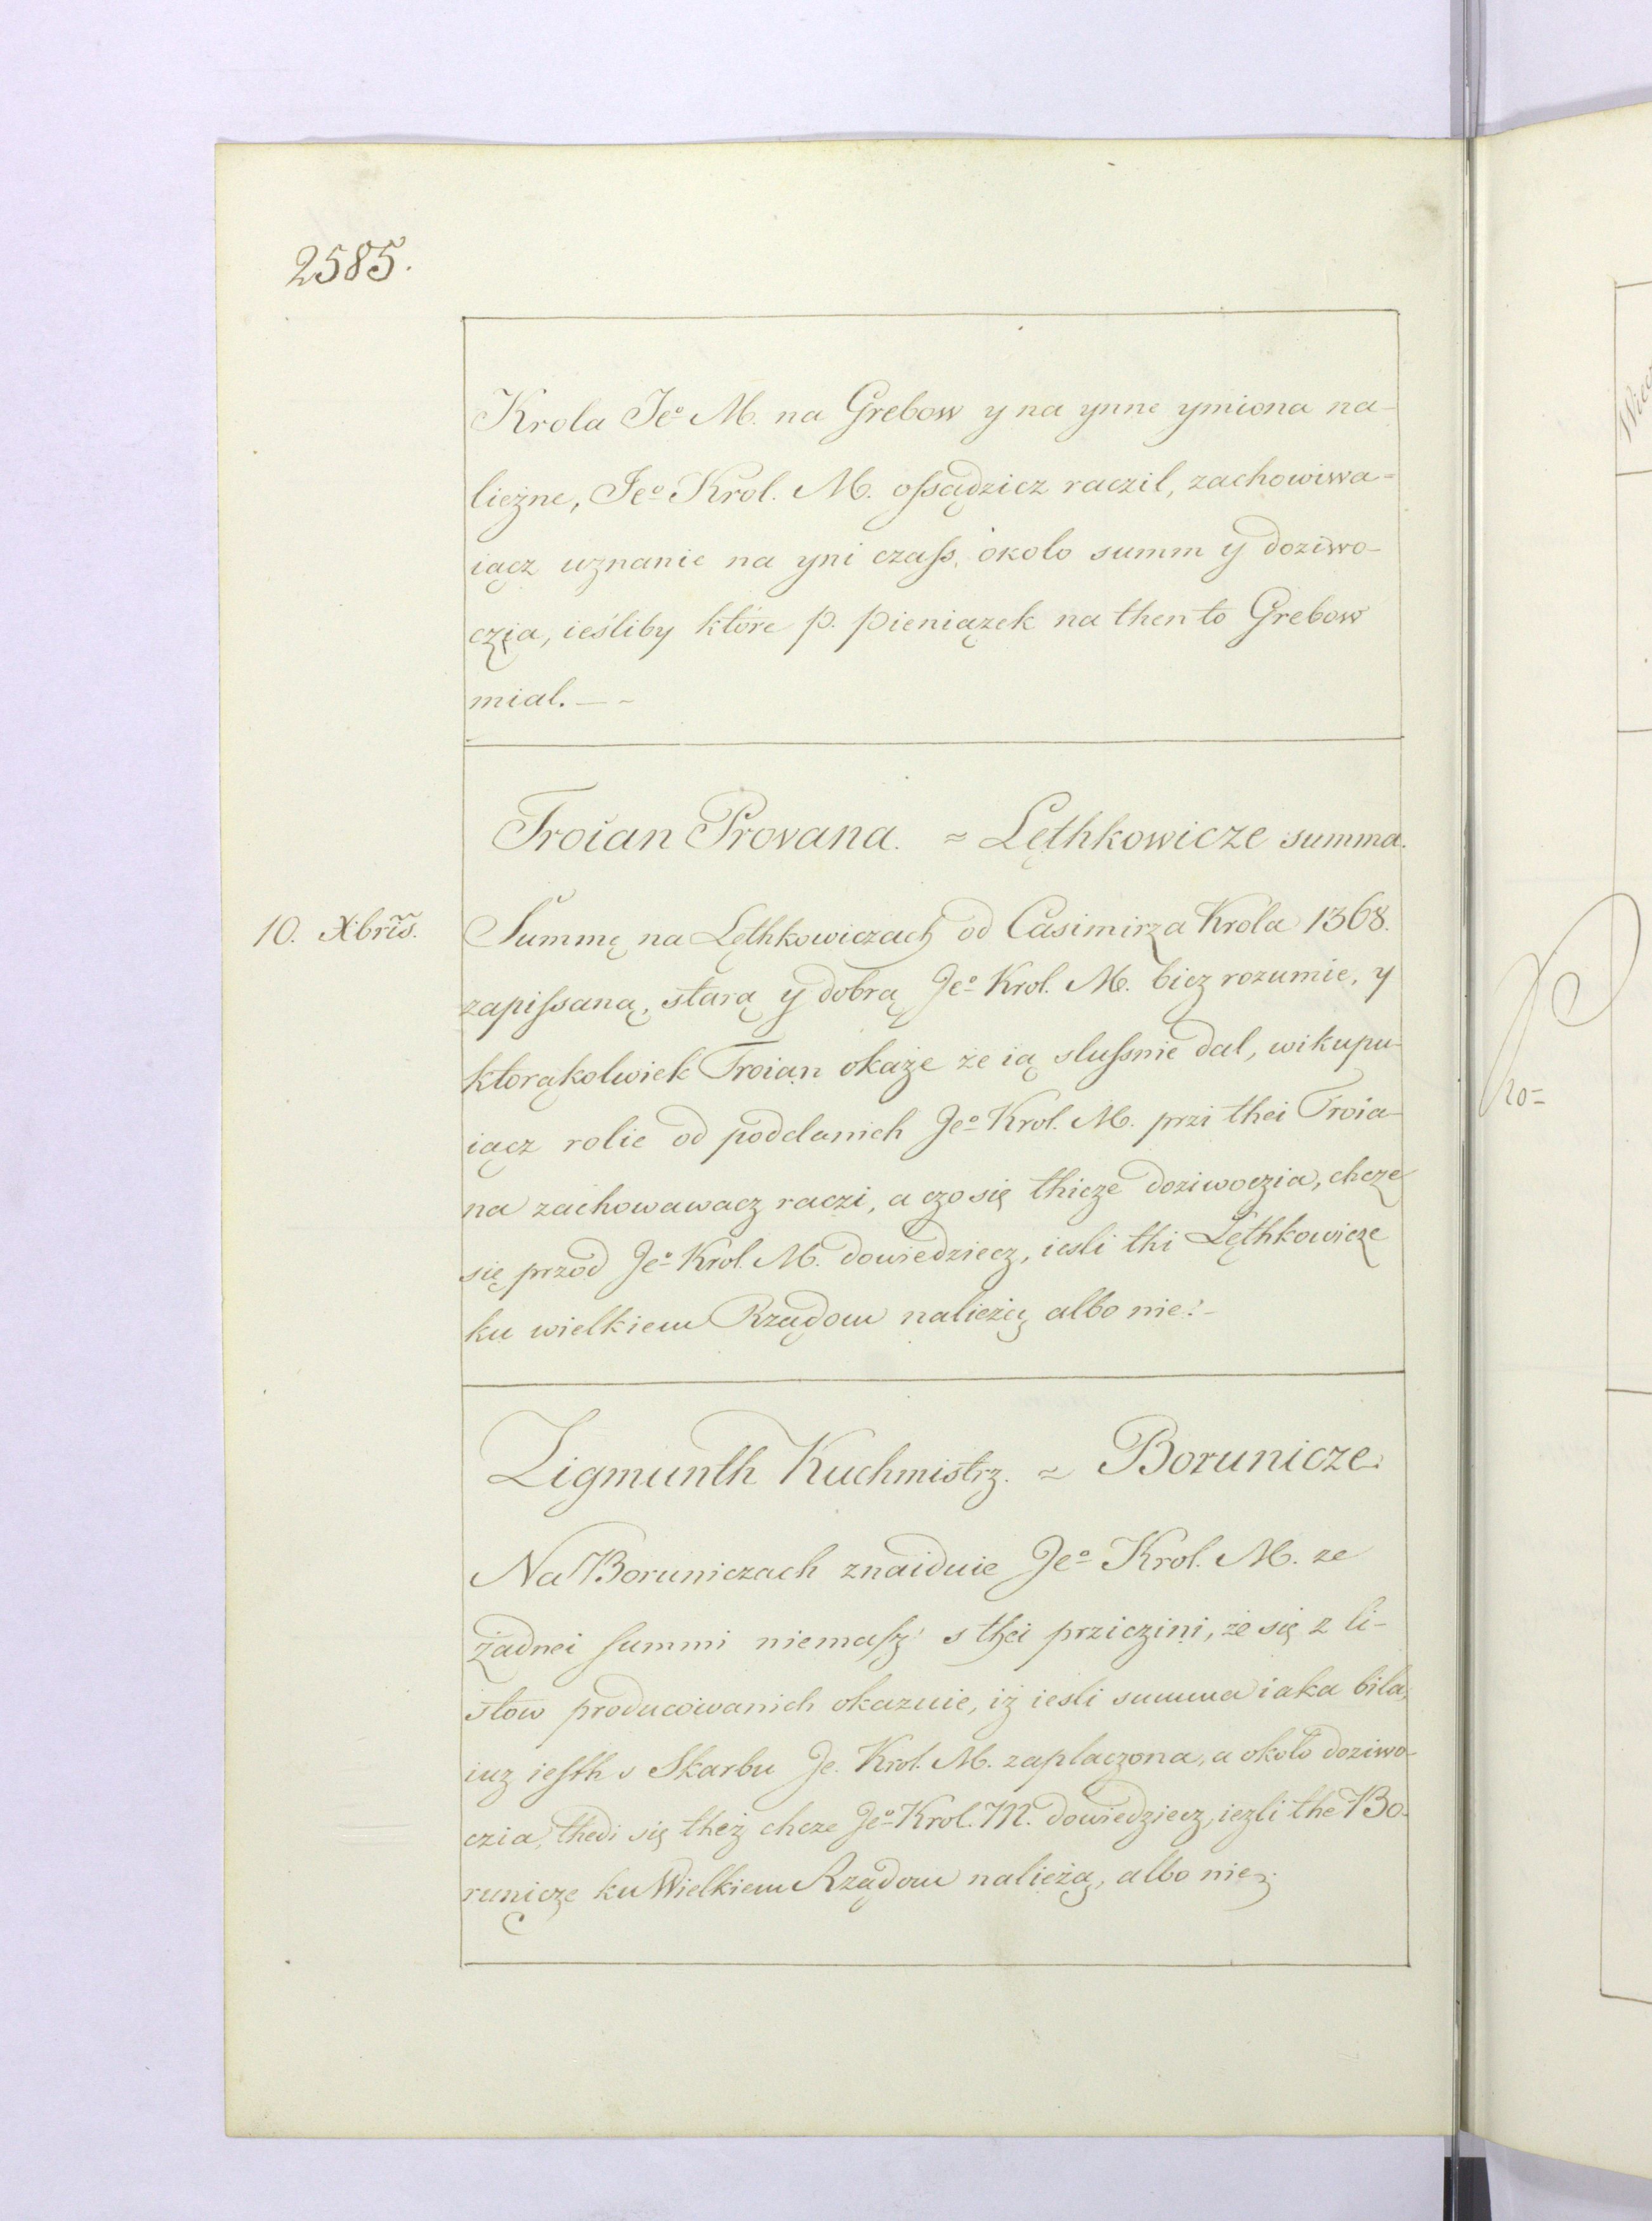 2585.
Krola Jeº M. na Grebow y na ynne ymiona na-
lieżne, Jeº Krol. M. ossądzicz raczil, zachowiwa=
iącz uznanie na yni czass, okolo summ y doziwo-
czia, ieśliby które p. pieniązek na then to Grebow
mial. — ~
Troian Provana. ≈ Lęthkowicze summa.
10. Xbris.
Summę na Lęthkowiczach od Casimirza Krola 1368.
zapissaną, starą y dobrą Jeº Krol. M. bicz rozumie, y
którąkolwiek Troian okaże że ią slussnie dal, wikupu-
iącz rolie od poddanich Jeº Krol. M. przi thei Troia-
na zachowawacz raczi, a czo się thicze doziwoczia, chcze
się przod Jeº Krol. M. dowiedziecz, iesli thi Lęthkowicze
ku wielkiem Rządom nalieżą albo nie. –
Zigmunth Kuchmistrz. ≈ Borunicze.
Na Boruniczach znaiduie Jeº Krol. M. ze
żadnei summi niemasz s thei przicżini, że się z li-
stow producowanich okazuie, iż iesli summa iaka bila,
iuz iesth s Skarbu Je. Krol. M. zaplaczona, a około doziwo-
czia, thedi się theż chcze Jeº Krol. M. dowiedziecz, iezli the Bo-
runicze ku Wielkiem Rządom nalieżą, albo nie.
20=